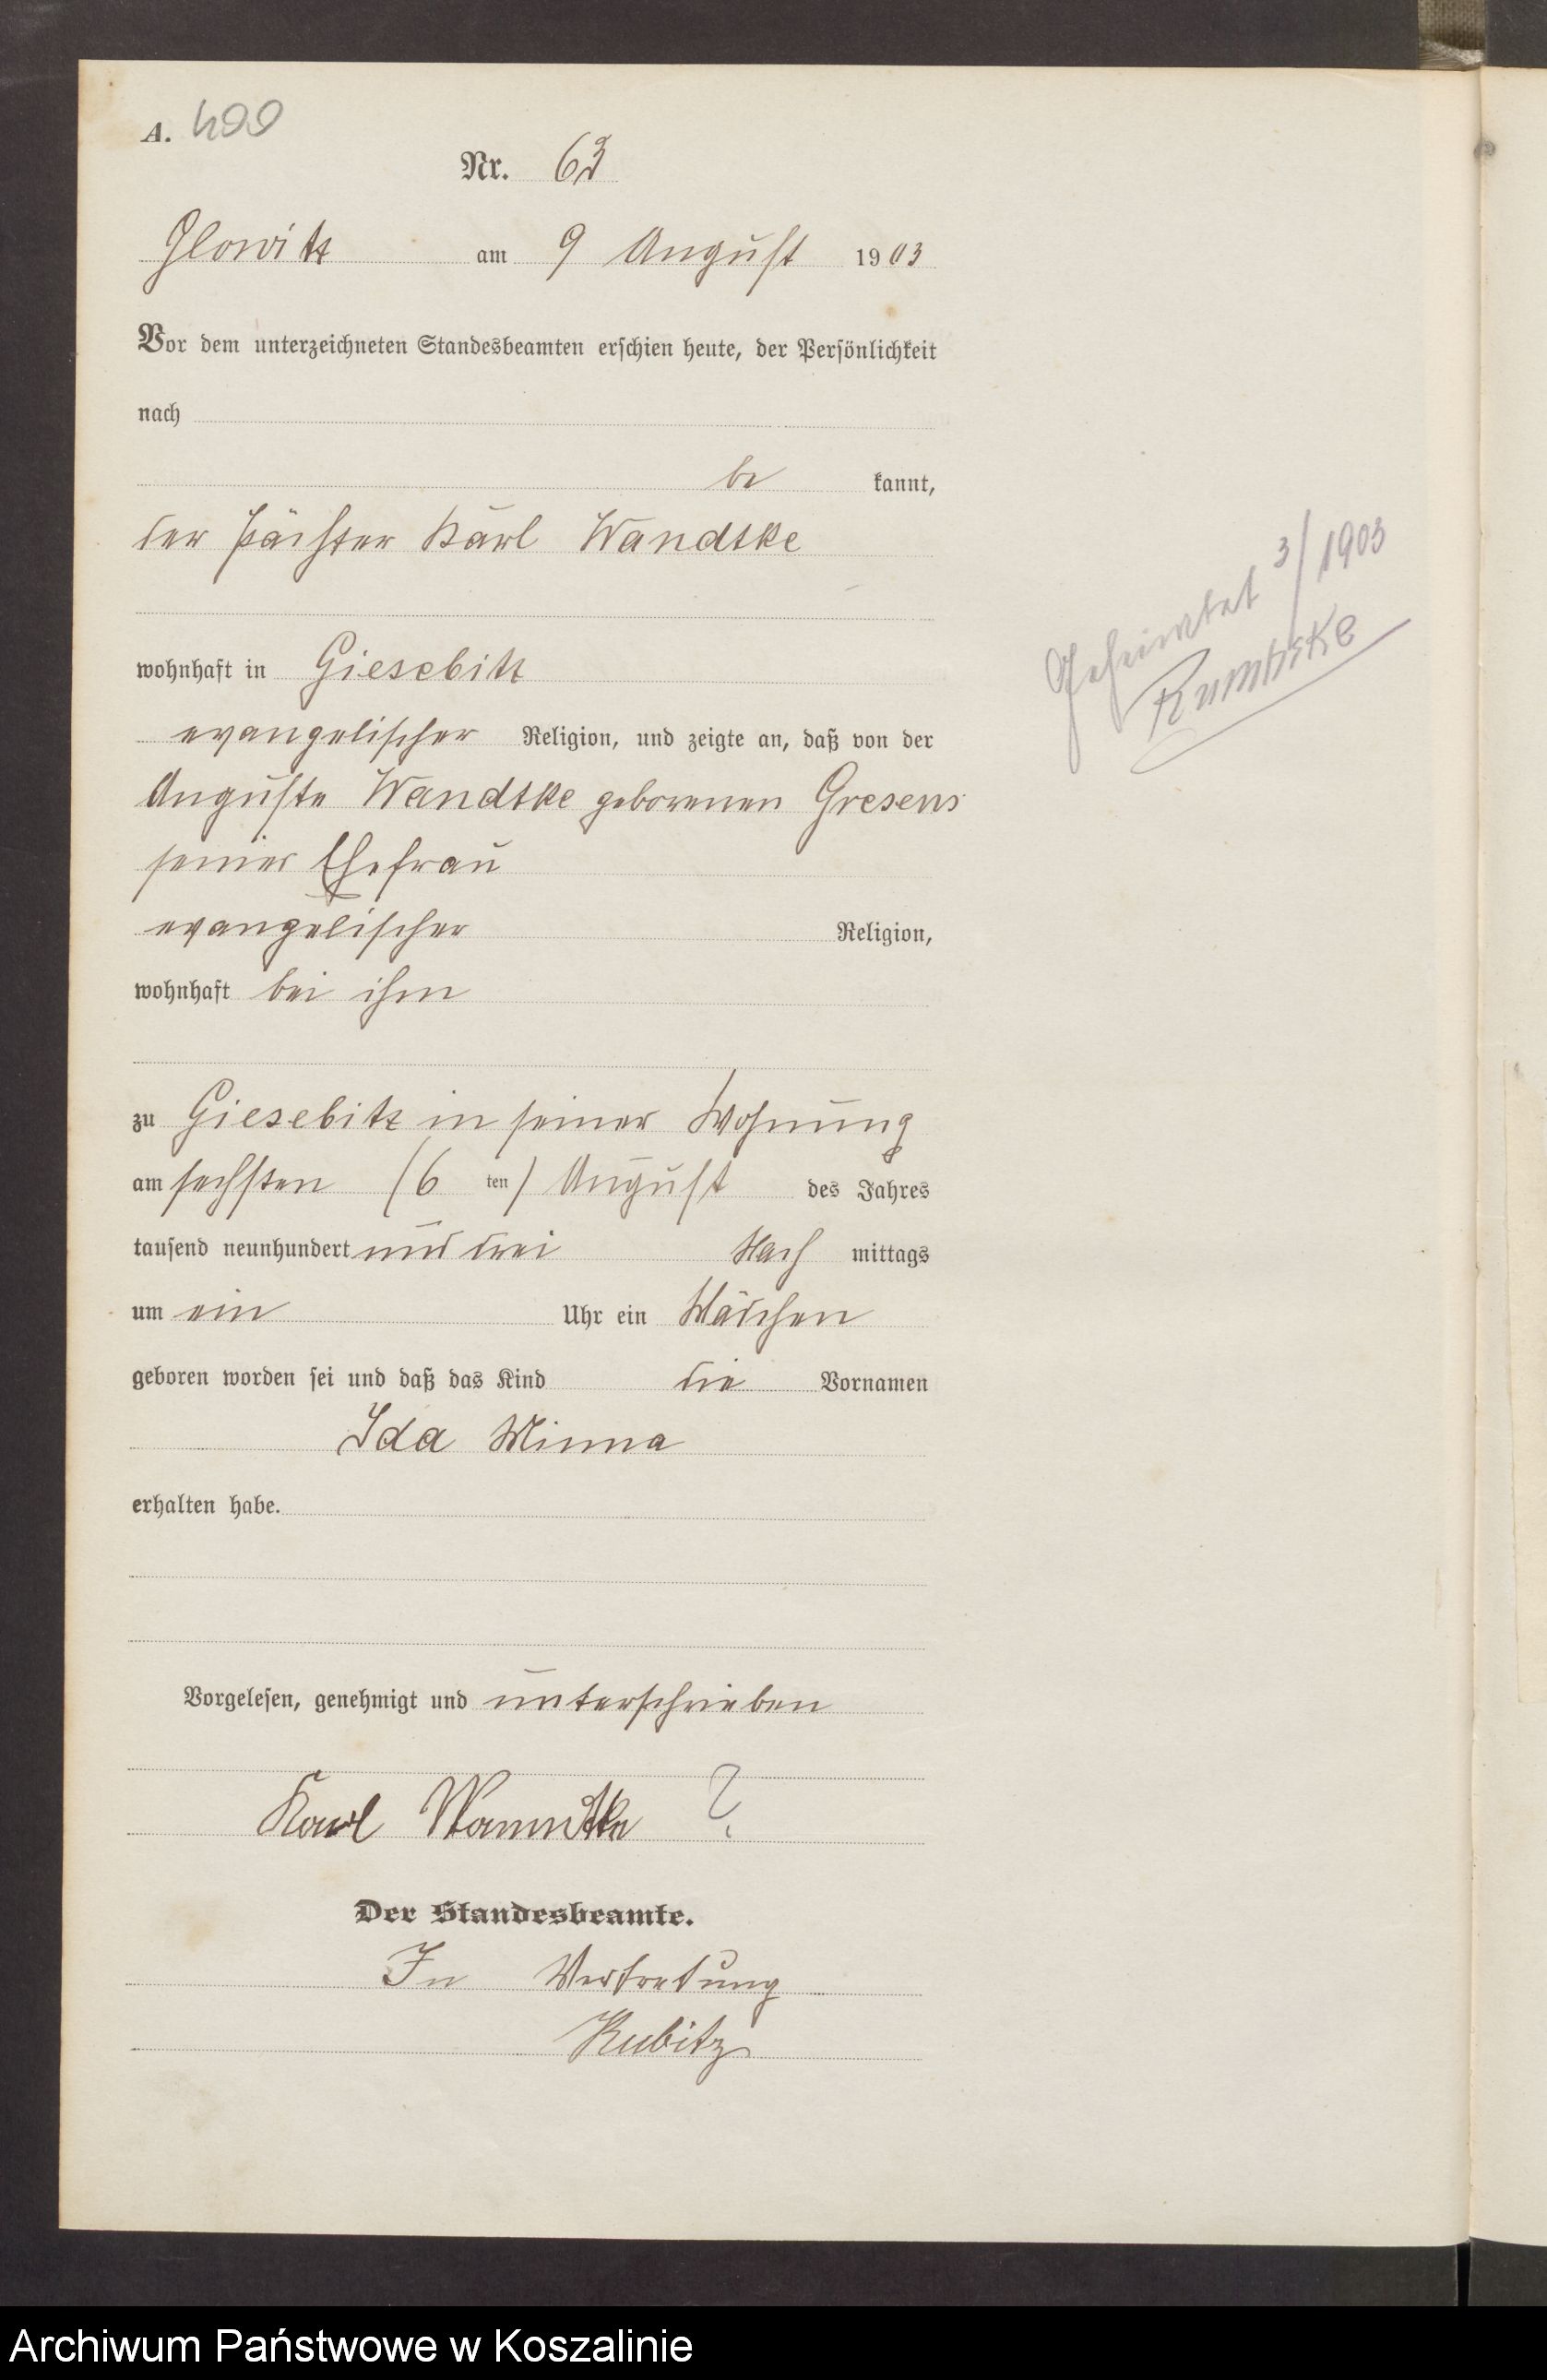 A. 499
Nr. 63
Glowitz am 9 August 1903
Vor dem unterzeichneten Standesbeamten erschien heute, der Persönlichkeit
nach
be kannt,
der Pächter Karl Wandtke
wohnhaft in Giesebitz
evangelischer Religion, und zeigte an, daß von der
Auguste Wandtke geborenen Gresens
seiner Ehefrau
evangelischer Religion,
wohnhaft bei ihm
zu Giesebitz in seiner Wohnung
am sechsten (6 ten) August des Jahres
tausend neunhundert und drei Nach mittags
um ein Uhr ein Mädchen
geboren worden sei und daß das Kind die Vornamen
Ida Minna
erhalten habe.
Vorgelesen, genehmigt und unterschrieben
Karl ?
Der Standesbeamte.
In Vertretung
Kubitz
Geheiratet 3/1903
Rumbske
Archiwum Państwowe w Koszalinie